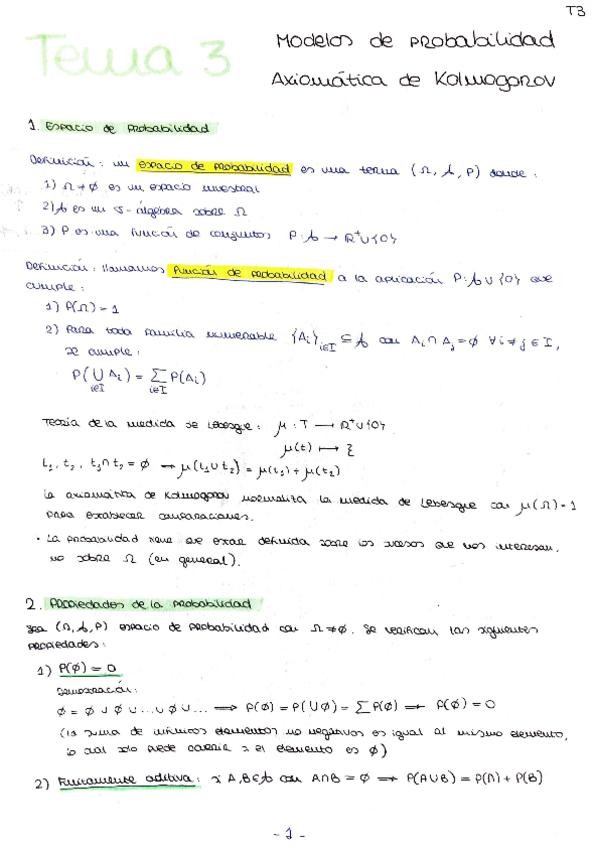 T3
Tema 3
Modelos de probabilidad
Axiomática de Kolmogorov
1. Espacio de probabilidad
Definición: un espacio de probabilidad es una terna (Ω, A, P) donde:
1) Ω ≠ ∅ es un espacio muestral
2) A es un σ-álgebra sobre Ω
3) P es una función de conjuntos P: A → R⁺∪{0}
Definición: llamamos función de probabilidad a la aplicación P: A∪{0} que
cumple:
1) P(Ω) = 1
2) Para toda familia numerable {Aᵢ}ᵢ∈I ⊆ A con Aᵢ ∩ Aⱼ = ∅ ∀ i ≠ j ∈ I,
se cumple:
P(∪ Aᵢ) = Σ P(Aᵢ)
i∈I i∈I
Teoría de la medida de Lebesgue: μ: T → R⁺∪{0}
μ(t) ↦ ξ
t₁, t₂, t₁∩t₂ = ∅ → μ(t₁∪t₂) = μ(t₁) + μ(t₂)
La axiomática de Kolmogorov normaliza la medida de Lebesgue con μ(Ω) = 1
para establecer comparaciones.
· La probabilidad tiene que estar definida sobre los sucesos que nos interesan,
no sobre Ω (en general).
2. Propiedades de la probabilidad
Sea (Ω, A, P) espacio de probabilidad con Ω ≠ ∅. Se verifican las siguientes
propiedades:
1) P(∅) = 0
Demostración:
∅ = ∅ ∪ ∅ ∪ ... ∪ ∅ ∪ ... ⟹ P(∅) = P(∪∅) = Σ P(∅) ⟹ P(∅) = 0
(la suma de infinitos elementos no negativos es igual al mismo elemento,
lo cual solo puede ocurrir si el elemento es ∅)
2) Finitamente aditiva: si A, B ∈ A con A∩B = ∅ ⟹ P(A∪B) = P(A) + P(B)
- 1 -